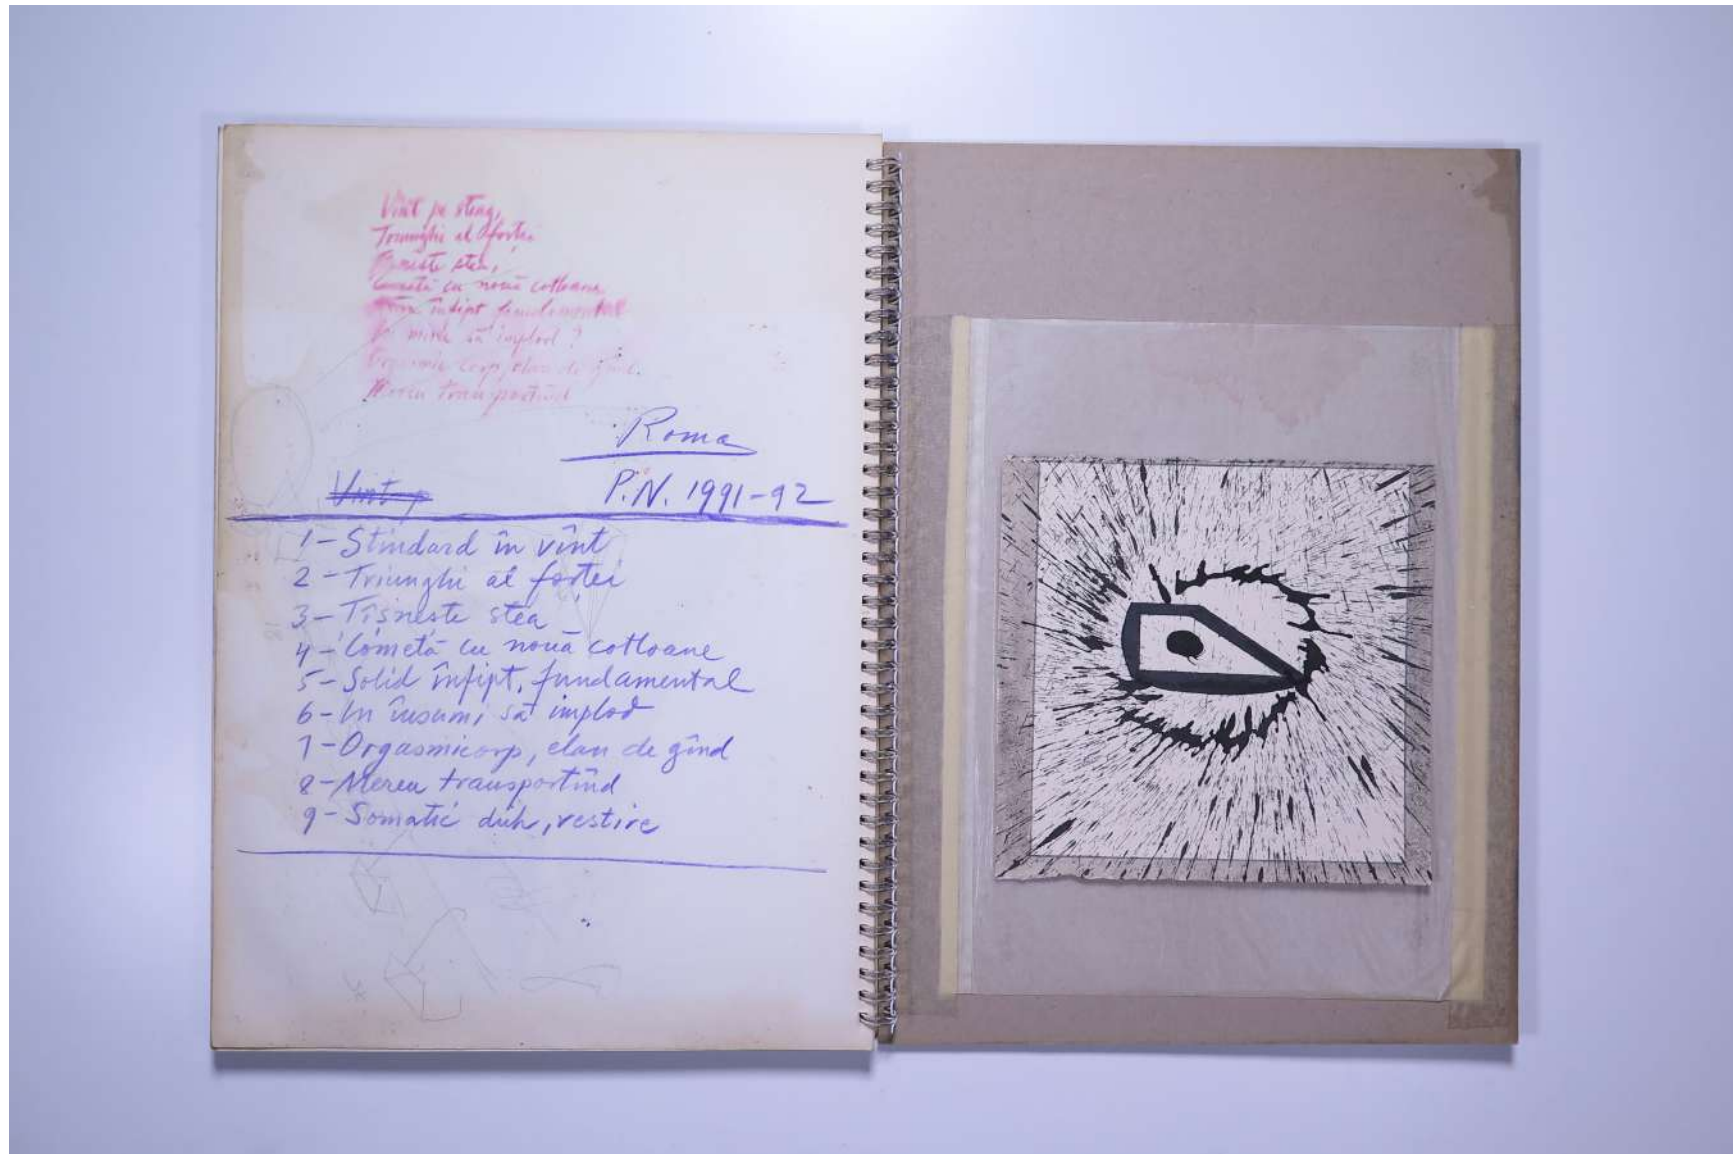 Vînt pe steag,
Triunghi al forței
Țîșnește stea,
Cometă cu nouă cotloane
înfipt fundamental
să implod?
corp, elan de gînd.
Mereu transportînd
Roma
P.N. 1991-92
1 - Stindard în vînt
2 - Triunghi al forței
3 - Tîsneste stea
4 - Cometă cu nouă cotloane
5 - Solid înfipt, fundamental
6 - In însumi să implod
7 - Orgasmicorp, elan de gînd
8 - Mereu transportînd
9 - Somatic duh, vestire